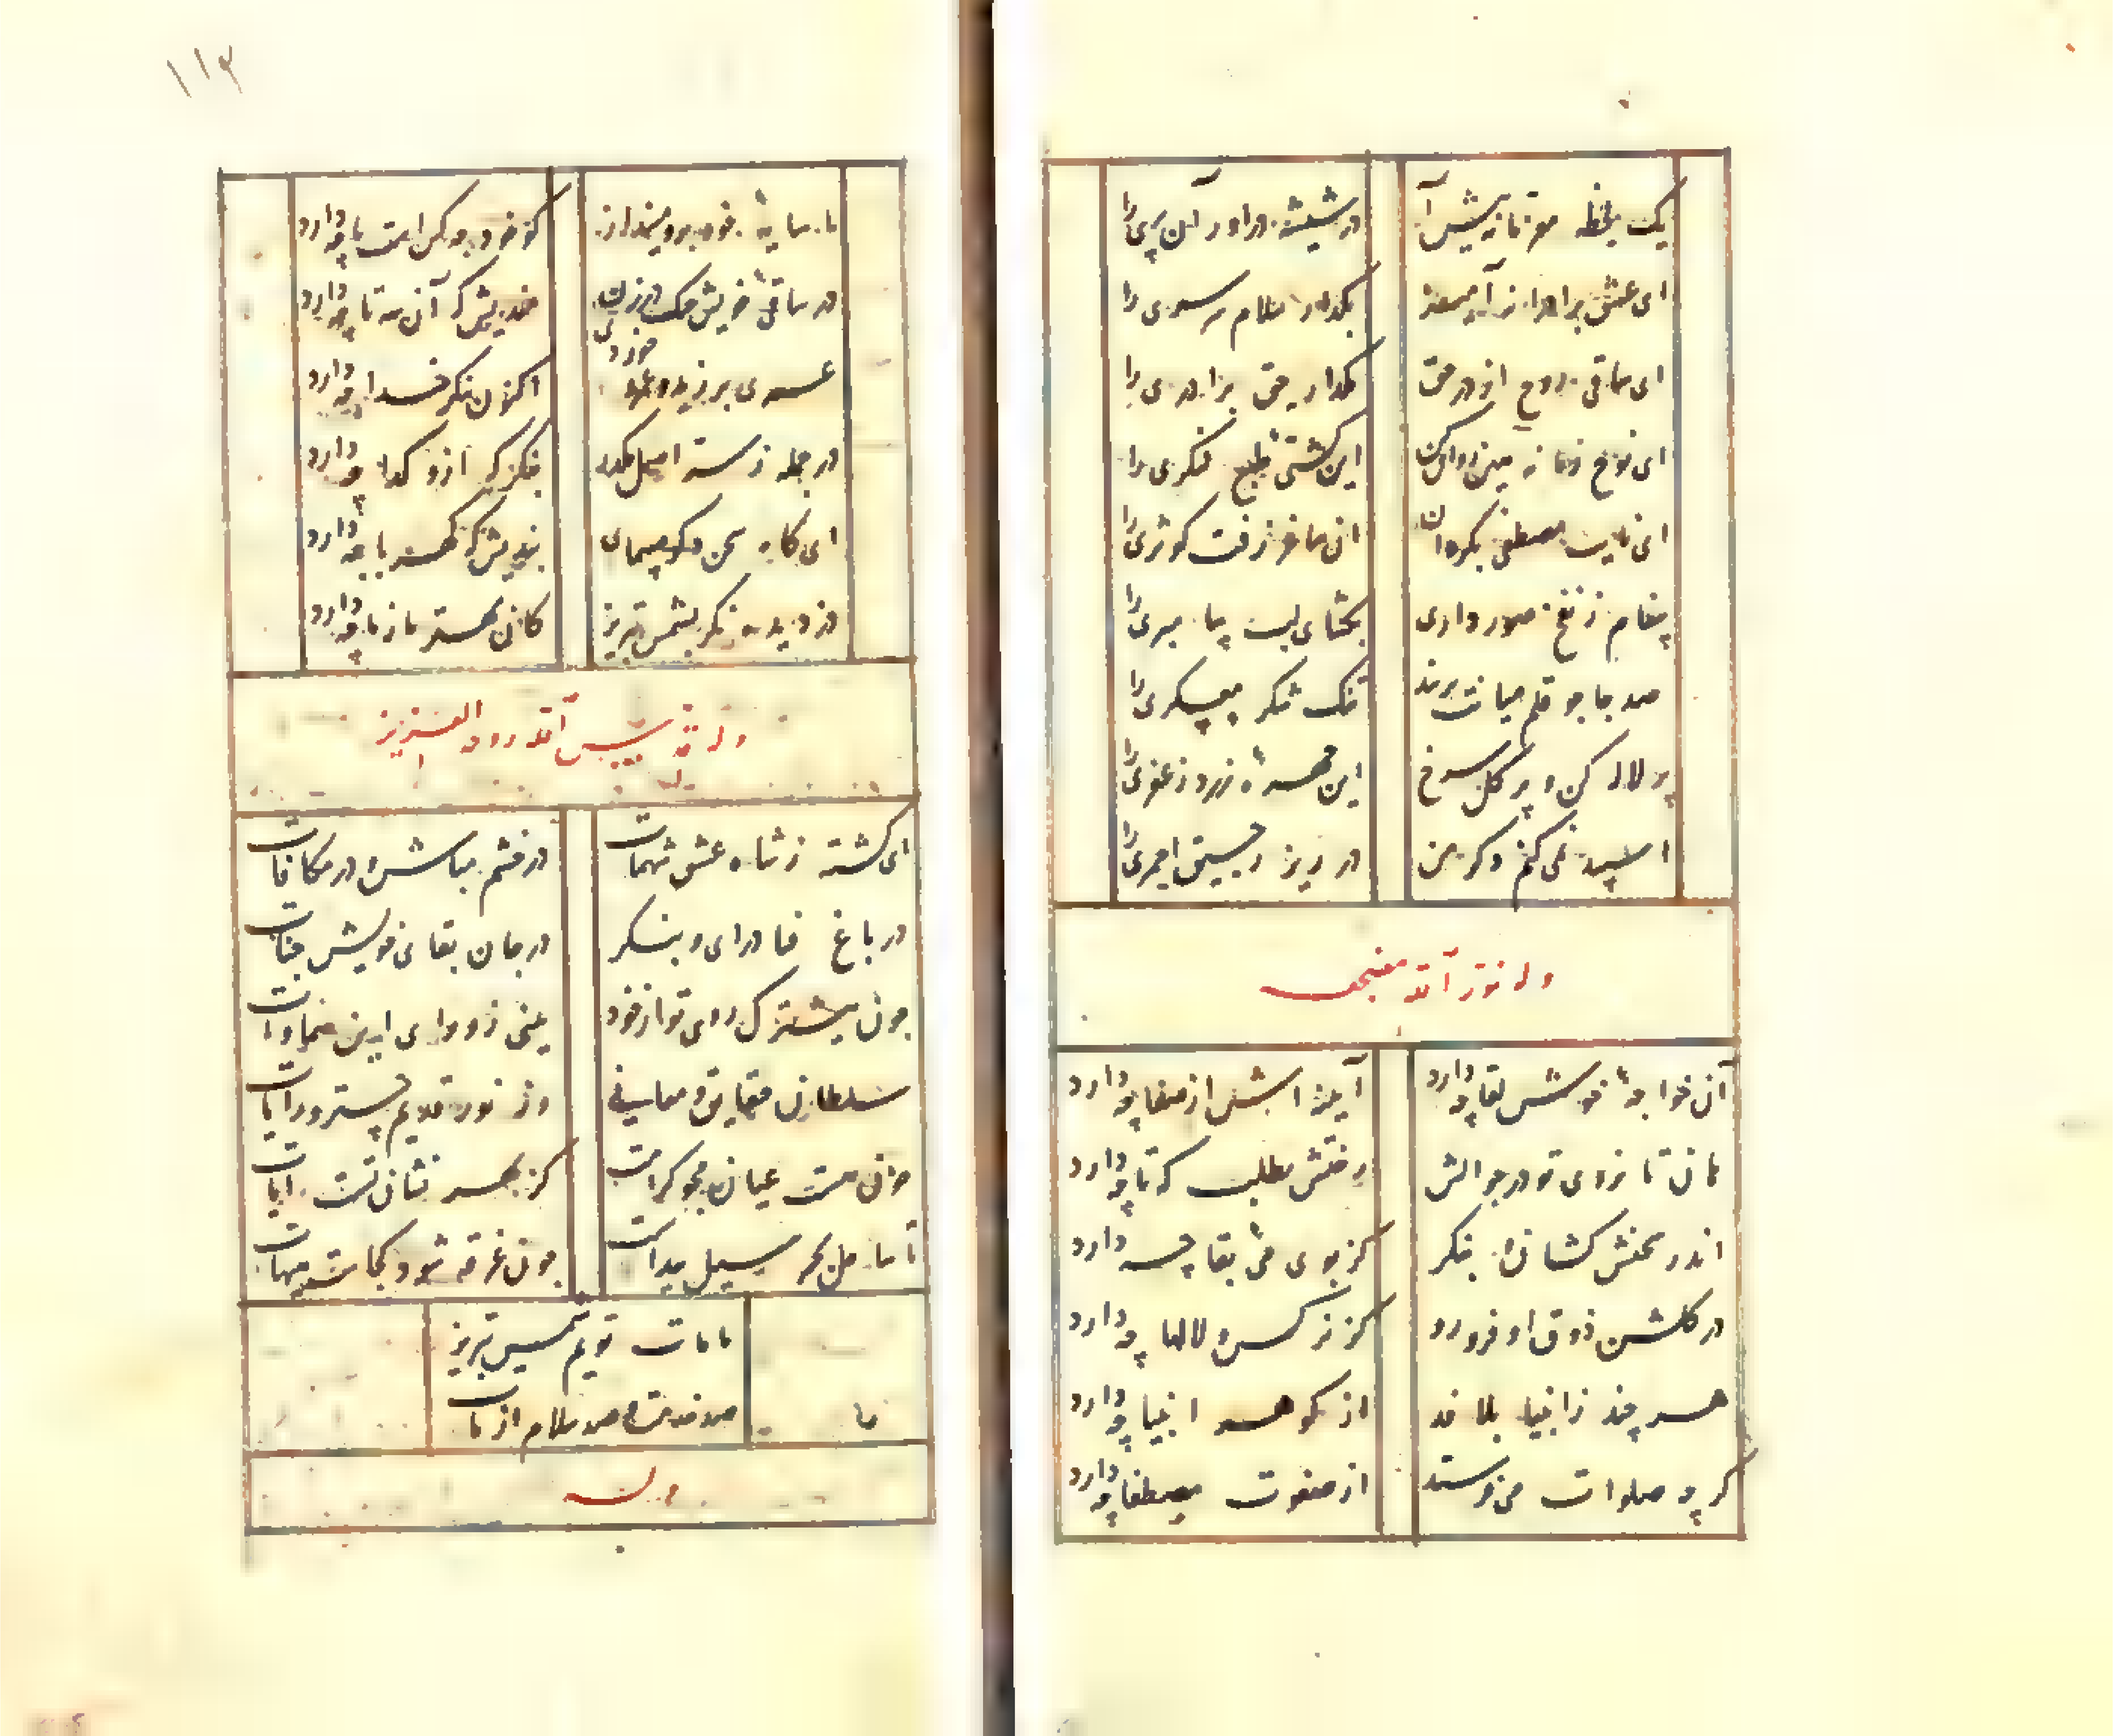 ۱۱۳
یک لحظه معزمانه پیش آ
در شیشه درآور آن پری را
ای عشق برادرانه آ پیش
بگذار سلام سرسری را
ای ساقی روح از در حق
مگذار حق برادری را
ای نوح زمانه هین روان کن
این کشتی طبع لنگری را
ای نایب مصطفی بگردان
آن ساغر زفت کوثری را
پیغام ز نفخ صور داری
بگشای لب پیامبری را
صد جا چو قلم میانت بندد
تنگ شکر
پر لاله کن و پر گل سرخ
این زرد زعفری را
اسپید نمی کنم دگر من
در ریز رحیق احمری را
وله نور الله مضجعه
آن خواجهٔ خوش لقا چه دارد
آیینه اش از صفا چه دارد
هان تا نروی تو در جوالش
رختش بطلب که تا چه دارد
اندر سخنش کشان و بنگر
کز بوی می بقا چه دارد
در گلشن ذوق او فرو رو
کز نرگس و لالها چه دارد
هر چند ز انبیا بلافد
از گوهر انبیا چه دارد
گر چه صلوات می فرستد
از صفوت مصطفا چه دارد
ما سایهٔ خود برو مینداز
کو خود چه کس است یا چه دارد
در ساقی خویش چنگ درزن
مندیش که آن سه تا چه دارد
عمری برزید و عمرو خوردی
اکنون بنگر خدا چه دارد
در جمله ز سته
بنگر که ازو گدا چه دارد
ای کاه سخن دگر مپیمای
بندیش که کهربا چه دارد
دزدیده نگر بشمس تبریز
کان ما ز ما چه دارد
وله قدس الله روحه العزیز
ای گشته ز شاه عشق شهمات
در خشم مباش و در مکافات
در باغ فنا درآی و بنگر
در جان بقای خویش جنات
چون پیشترک روی تو از خود
بینی ز ورای این سماوات
سلطان حقایق و معانی
وز نور قدیم چتر و رایات
چون هست عیان مجو کرامت
کز بهر نشان است آیات
تا ساحل بحر سیل پیداست
چون غرقه شود کجاست هیهات
ما مات توایم شمس تبریز
صد خدمت و صد سلام از مات
ما
وله